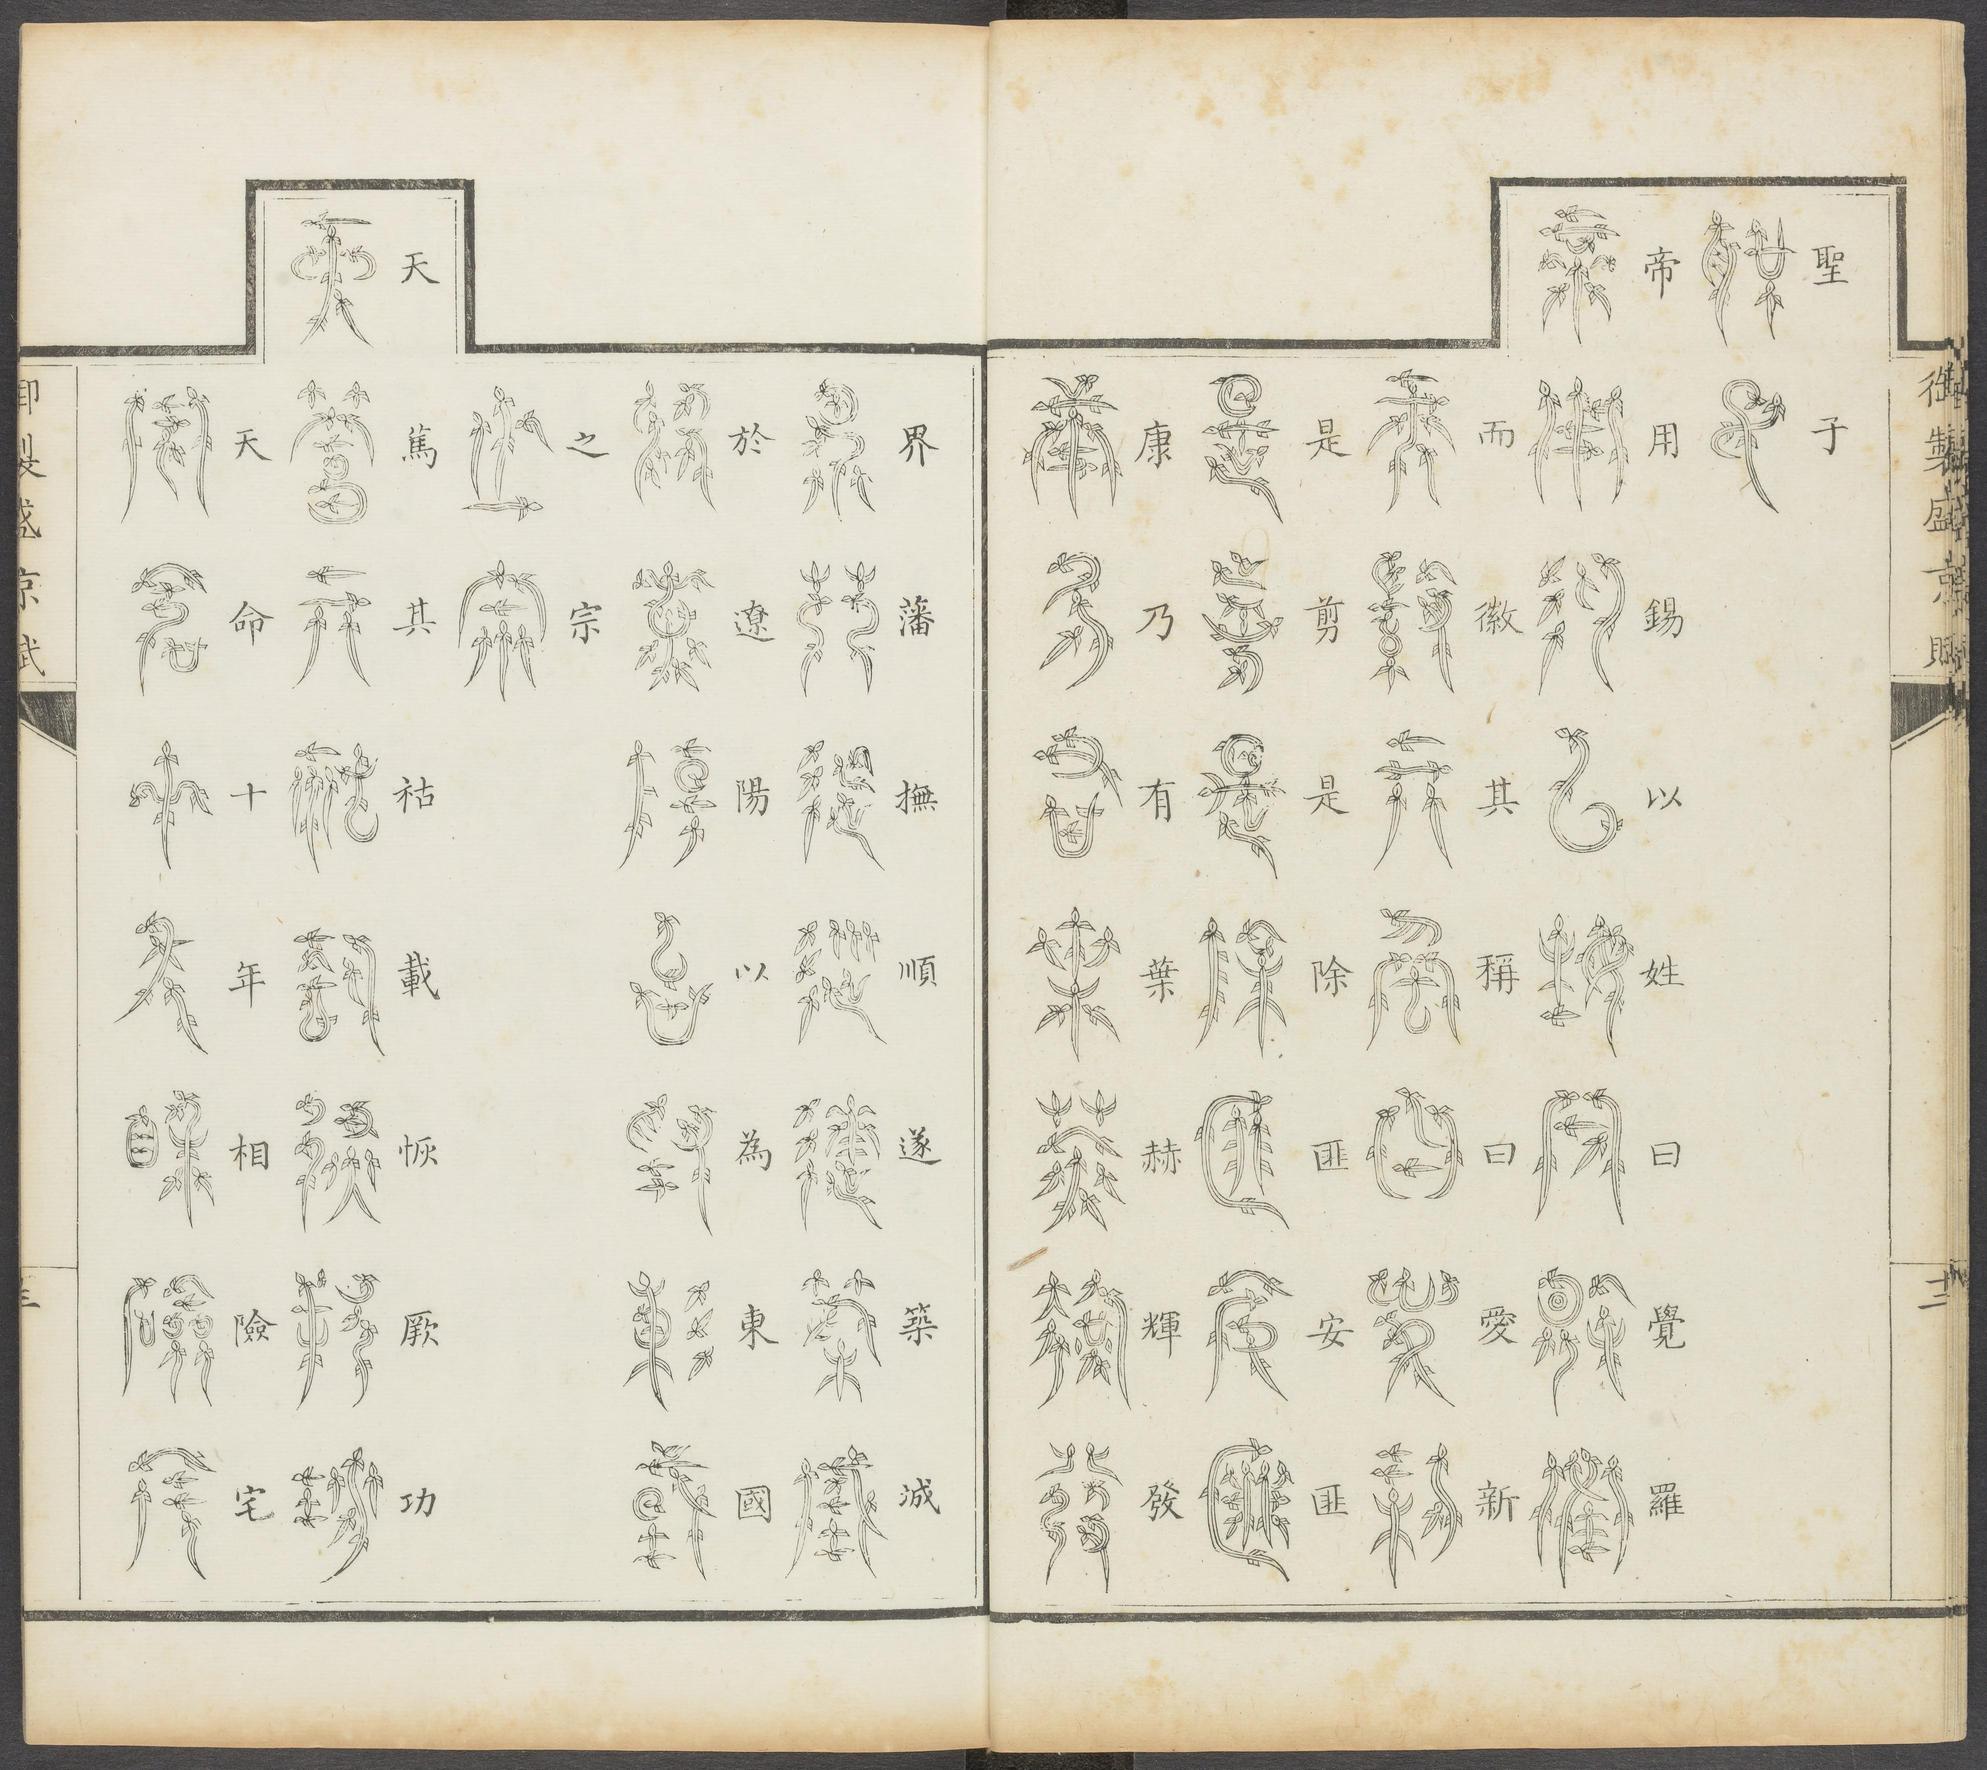 御製盛京賦
十二
聖子
帝用錫以姓曰覺羅
而徽其稱曰愛新
是剪是除匪安匪
康乃有葉赫輝發
界藩撫順遂築誠
於遼陽以為東國
之宗
天篤其祜載恢厥功
天命十年相險宅
御製盛京賦